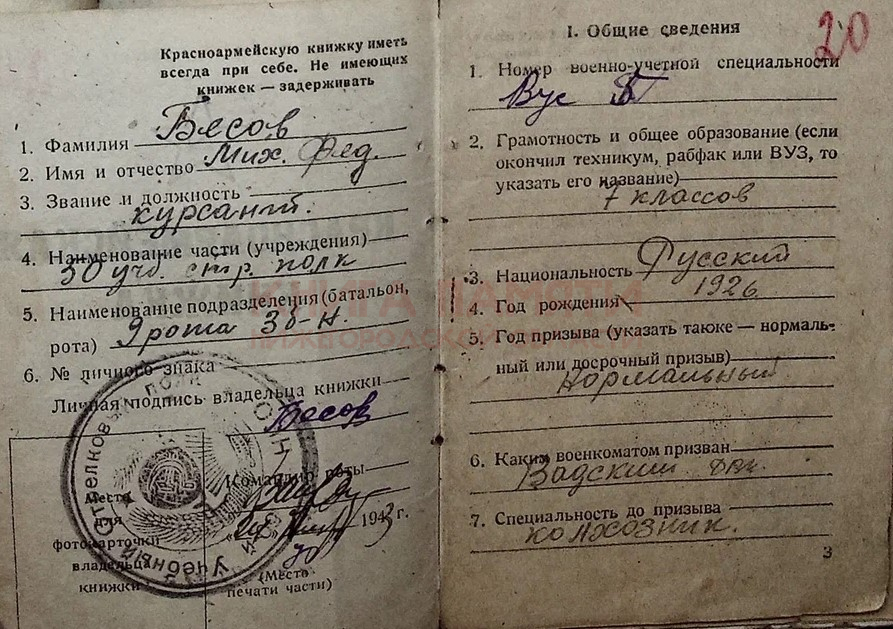 Красноармейскую книжку иметь
всегда при себе. Не имеющих
книжек — задерживать
1. Фамилия Бесов
2. Имя и отчество Мих. Фед.
3. Звание и должность
курсант.
4. Наименование части (учреждения)
30 учб. стр. полк
5. Наименование подразделения (батальон,
рота) 9 рота 3 б-н.
6. № личного знака
Личная подпись владельца книжки
Бесов
Командир роты
1943 г.
Место
для
фотокарточки
владельца
книжки
(Место
печати части)
Учебный стрелковый полк
20
I. Общие сведения
1. Номер военно-учетной специальности
Вус
2. Грамотность и общее образование (если
окончил техникум, рабфак или ВУЗ, то
указать его название)
7 классов
3. Национальность Русский
4. Год рождения 1926
5. Год призыва (указать также — нормаль-
ный или досрочный призыв)
Нормальный
6. Каким военкоматом призван
Вадский
7. Специальность до призыва
колхозник.
3
КНИГА ПАМЯТИ